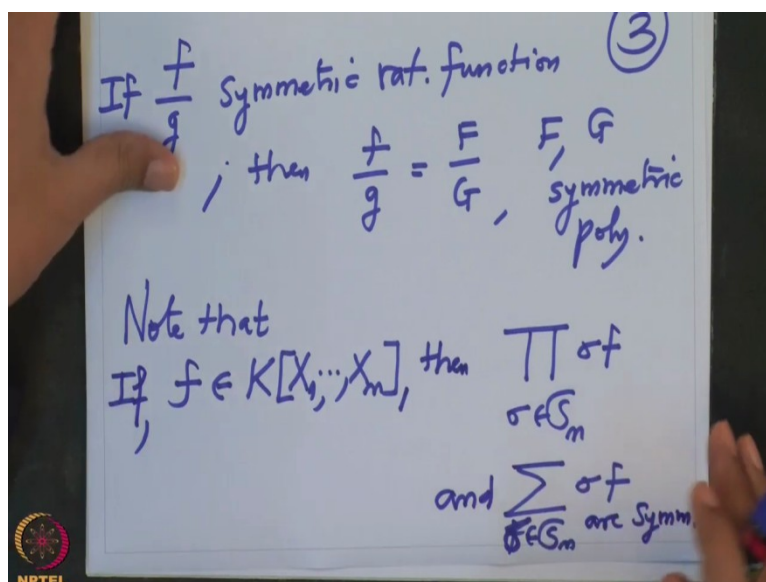 ③
If f/g symmetric rat. function
; then f/g = F/G, F, G symmetric poly.
Note that
If, f ∈ K[X₁,...,Xₙ], then ∏ σf
σ∈𝔖ₙ
and ∑ σf
σ∈𝔖ₙ are symm.
NPTEL